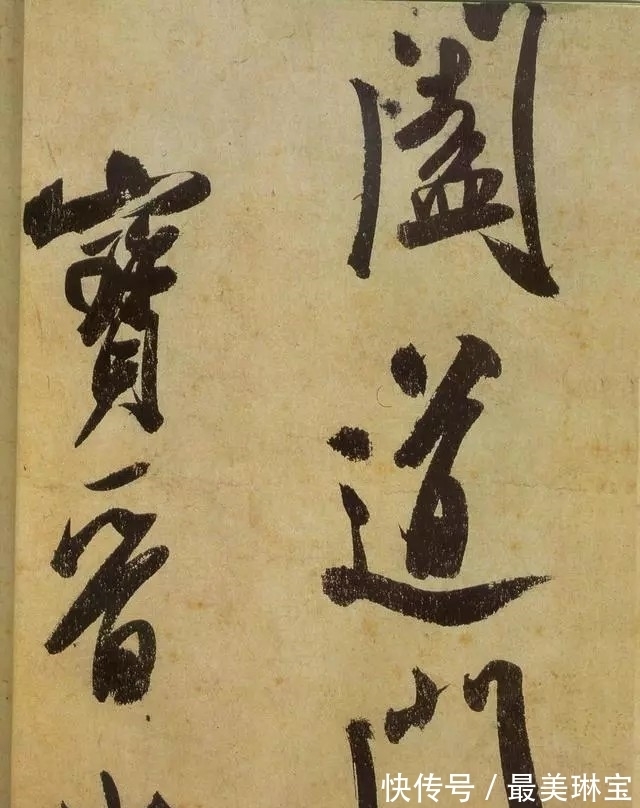 闔道門
寶晉
快传号 / 最美琳宝